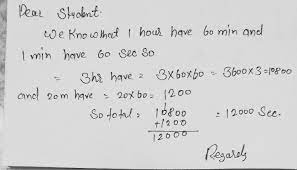 Dear Student.
We Know that 1 hour have 60 min and
1 min have 60 Sec So
= 3hr have = 3x60x60 = 3600x3=10800
and 20m have = 20x60 = 1200
So total = 10800 = 12000 Sec.
+1200
12000
Regards